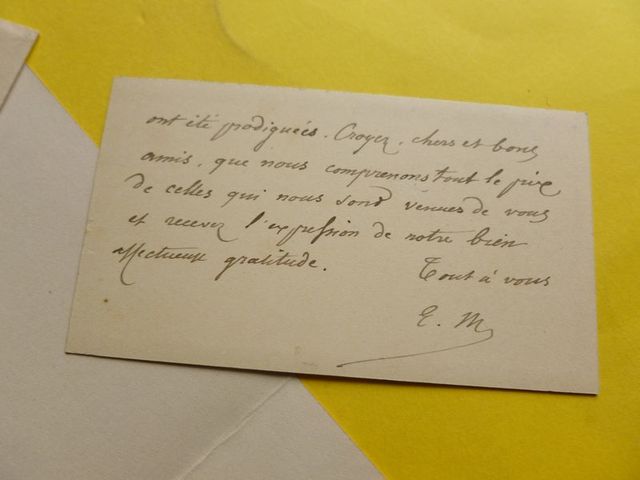 ont été prodiguées. Croyez, chers et bons
amis, que nous comprenons tout le prix
de celles qui nous sont venues de vous
et recevez l'expression de notre bien
affectueuse gratitude.
Tout à vous
E. M.